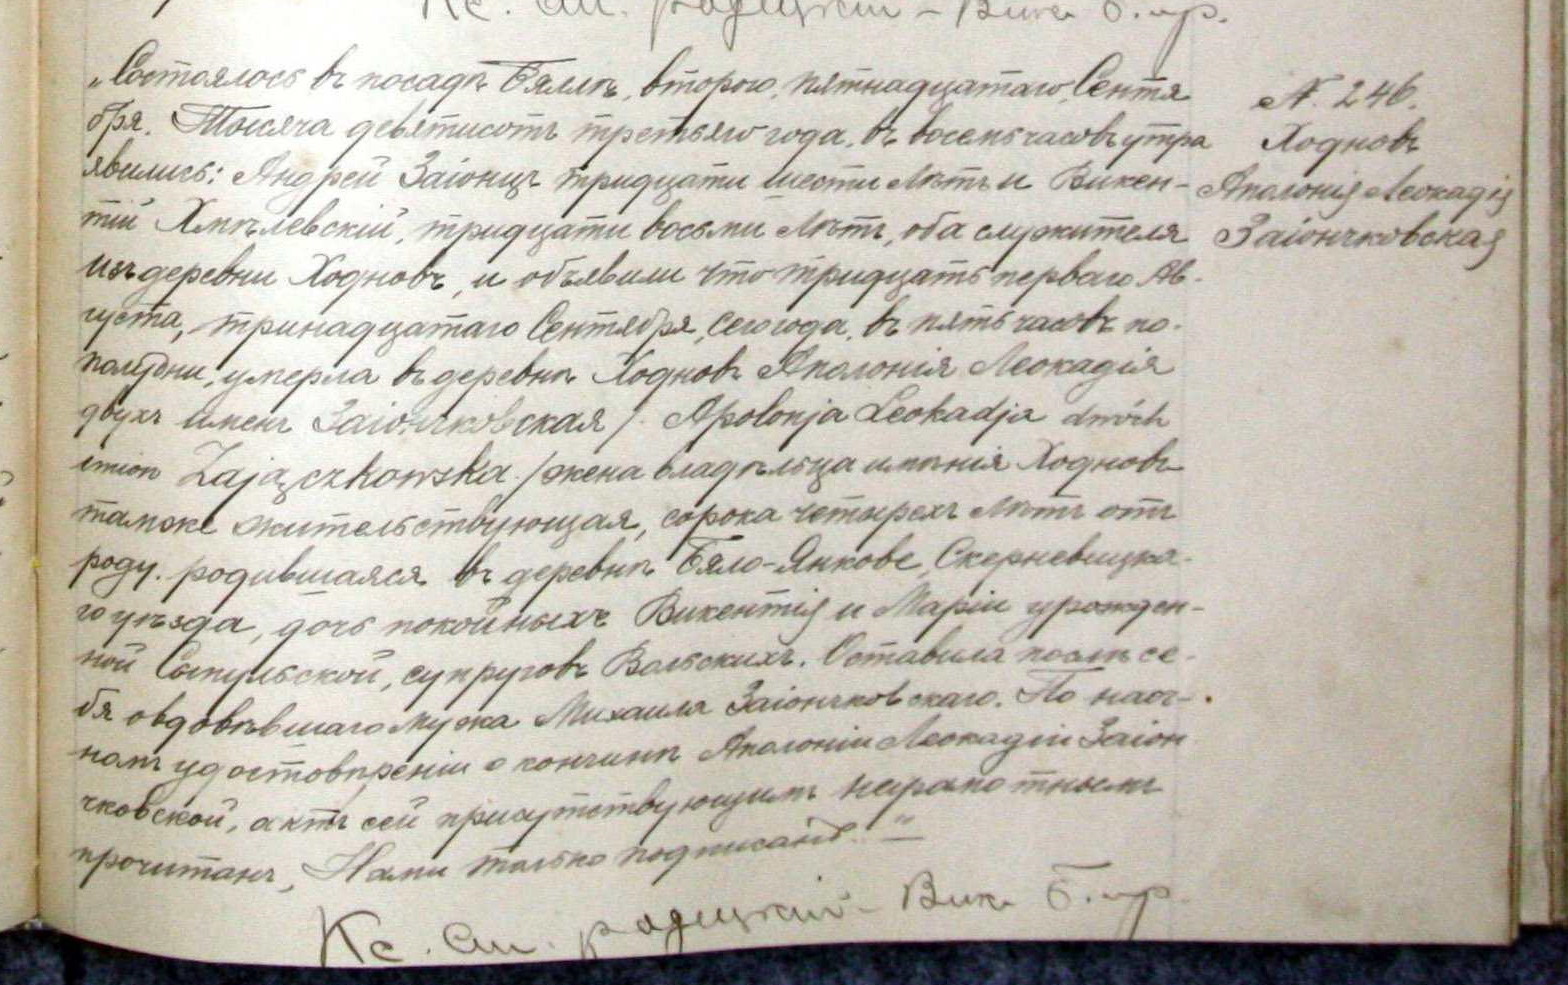 Кс. Ст. Радецкій - Вик. Б. пр.
„Состоялось въ посадѣ Бялѣ, второго, пятнадцатаго, Сентя
бря. Тысяча девятисотъ третьяго года, въ восемь часовъ утра
явились: Андрей Заіонцъ тридцати шести лѣтъ и Викен-
тій Хмѣлевскій, тридцати восьми лѣтъ, оба служителя
изъ деревни Ходновъ, и объявили что тридцать перваго Ав-
густа, тринадцатаго Сентября, сего года, въ пять часовъ по-
полудни, умерла въ деревнѣ Ходновъ Аполонія Леокадія
двухъ именъ Заіончковская /. Apolonja Leokadja dwóch
imion Zajączkowska ./ жена владѣльца имѣнія Ходновъ
тамже жительствующая, сорока четырехъ лѣтъ отъ
роду. родившаяся въ деревнѣ Бяло-Янкове, Скерневицка-
го уѣзда, дочь покойныхъ Викентія и Маріи урожден-
ной Сыпульской, супруговъ Вольскихъ. Оставила послѣ се-
бя овдовѣвшаго мужа Михаила Заіончковскаго. По наоч-
номъ удостовѣреніи о кончинѣ Аполоніи Леокадіи Заіон
чковской, актъ сей присутствующимъ неграмотнымъ
прочитанъ, Нами только подписанъ."
Кс. Ст. Радецкій - Вик. Б. пр.
№. 246.
Ходновъ
Аполонія Леокадія
Заіончковская